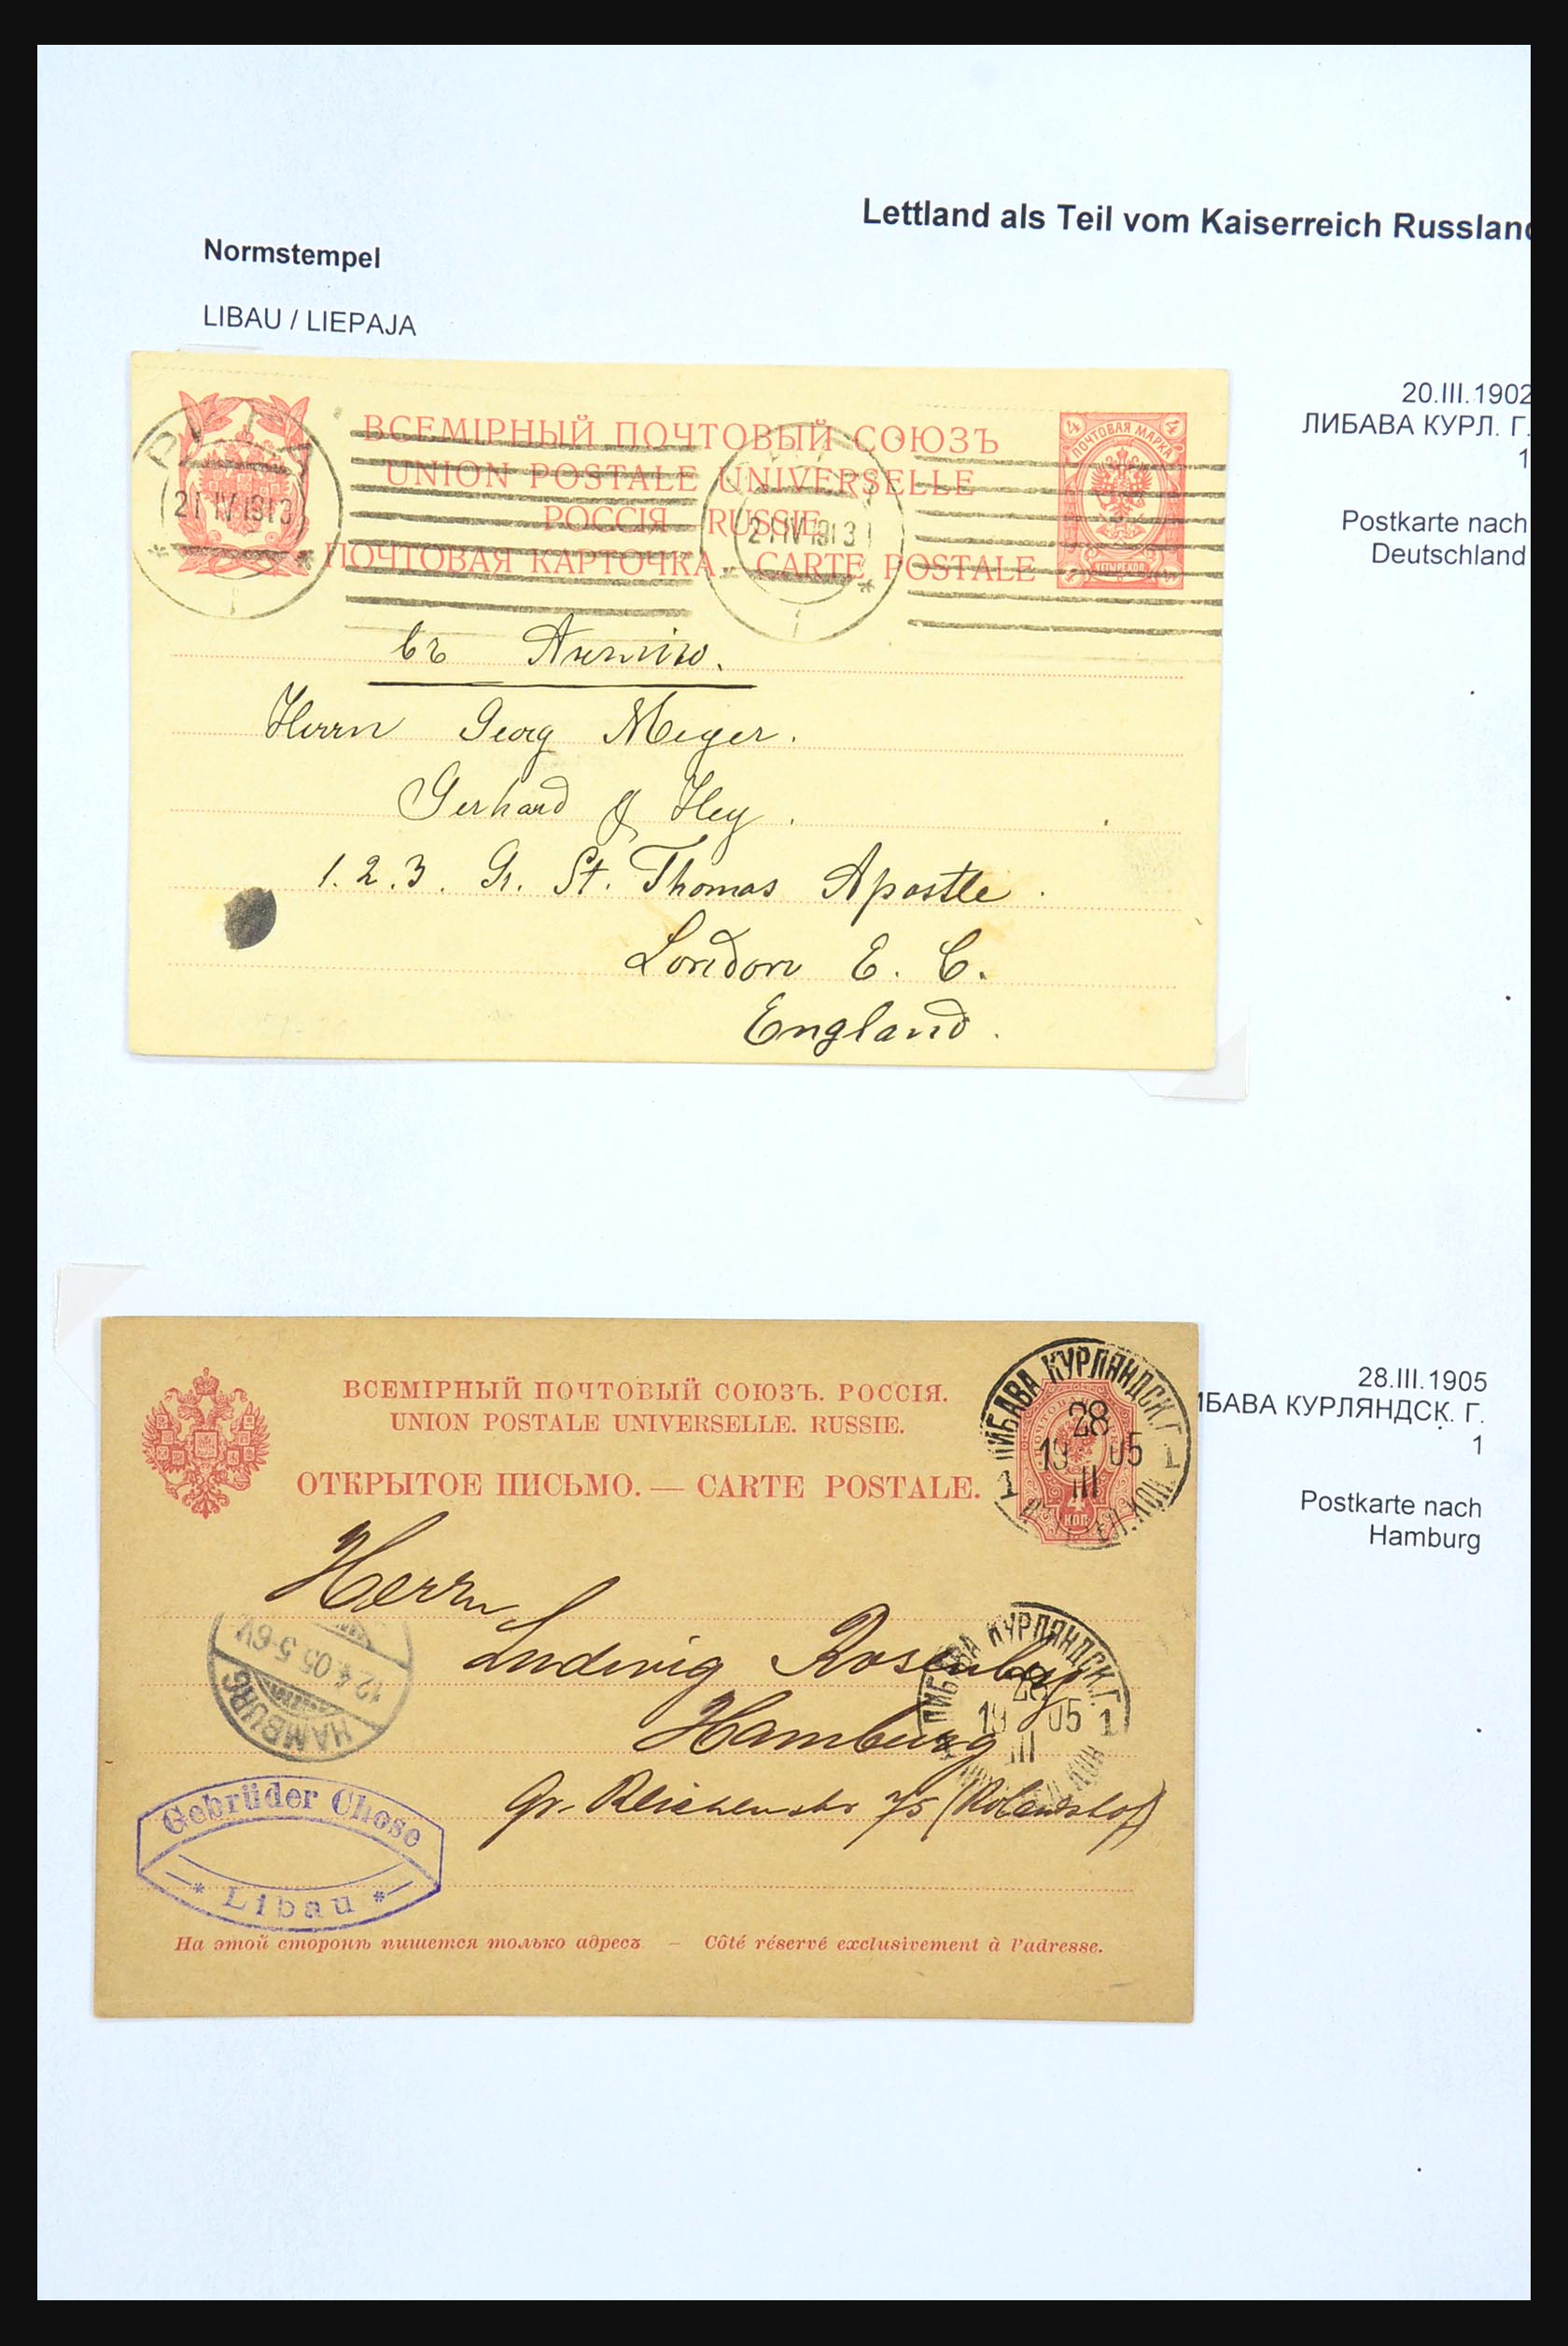 Lettland als Teil vom Kaiserreich Russland
Normstempel
LIBAU / LIEPAJA
20.III.1902
ЛИБАВА КУРЛ. Г.
1
Postkarte nach
Deutschland
ВСЕМІРНЫЙ ПОЧТОВЫЙ СОЮЗЪ
UNION POSTALE UNIVERSELLE
РОССІЯ RUSSIE
ПОЧТОВАЯ КАРТОЧКА - CARTE POSTALE
4 4
ПОЧТОВАЯ МАРКА
ЧЕТЫРЕ КОП.
21 IV 1913
21 IV 1913
въ Англію.
Herrn Georg Meyer.
Gerhard & Hey.
1.2.3. Gr. St. Thomas Apostle.
London E. C.
England.
28.III.1905
ИБАВА КУРЛЯНДСК. Г.
1
Postkarte nach
Hamburg
ВСЕМІРНЫЙ ПОЧТОВЫЙ СОЮЗЪ. РОССІЯ.
UNION POSTALE UNIVERSELLE. RUSSIE.
ОТКРЫТОЕ ПИСЬМО. — CARTE POSTALE.
ЛИБАВА КУРЛЯНДСК. Г.
28
19 05
III
1 1
4
КОП.
Herrn
Ludwig Rosenberg
Hamburg
Gr. Reichenstr 7/5 (Rolandshof)
ЛИБАВА КУРЛЯНДСК. Г.
28
19 05 1
III
12.4.05 5-6V.
HAMBURG
Gebrüder Chose
* Libau *
На этой сторонѣ пишется только адресъ — Côté réservé exclusivement à l'adresse.